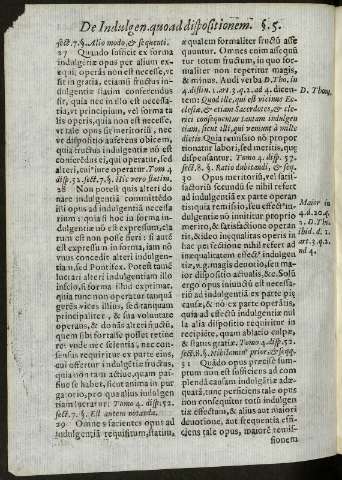 De Indulgen. quoad dispositionem. §. 5.
sect. 7. §. Alio modo, & sequenti.
27 Quando suscipit ex forma
indulgētiæ opus per alium ex-
equi, operās non est necesse, vt
sit in gratia, etiamsi fructus in-
dulgentiæ statim conferendus
sit, quia nec in illo est necessa-
ria, vt principium, vel forma ta
lis operis, quia non est necesse,
vt tale opus sit meritoriū, nec
vt dispositio auferens obicem,
quia fructus indulgētiæ nō est
conferēdus ei, qui operatur, sed
alteri, cui iure operatur. Tom 4
disp. 52. sect. 7. §. illis vero statim.
28 Non potest quis alteri do
nare indulgentiā committēdo
illi opus ad indulgentiā necessa
rium: quia si hoc in forma in-
dulgentiæ nō est expressum, cla
rum est non posse fieri: si autē
est expressum in forma, iam nō
vnus concedit alteri indulgen-
tiam, sed Pontifex. Potest tamē
lucrari alteri indulgentiam illo
inscio, si forma illud exprimat,
quia tunc non operatur tanquā
gerēs vices illius, sed tanquam
principaliter, & sua voluntate
operans, & donās alteri fructū,
quem sibi fortasse posset retine
re: vnde nec scientia, nec con-
sensus requiritur ex parte eius,
cui offertur indulgētiæ fructus,
quia non tam active, quam pas-
siue se habet, sicut anima in pur
gatorio, pro qua alius indulgen
tiam lucratur: Tomo 4. disp. 52.
sect. 7. §. Est autem notanda.
29 Omne s faciētes opus ad
indulgentiā requisitum, statim,
& qualem formaliter fructū asse
quuntur. Omnes enim assequū
tur totum fructum, in quo for-
maliter non reperitur magis,
& minus. Audi verba D. Tho. in
4. distin. 1. art. 3. q. 2. ad 4. dicen-
tem: Quod ille, qui est vicinus Ec-
clesiæ, & etiam Sacerdotes, & cle-
rici consequuntur tantam indulgen
tiam, sicut illi, qui veniunt à mille
dietis Quia remissio nō propor
tionatur labori, sed meritis, quę
dispensantur. Tomo 4. disp. 52.
sect. 8. §. Ratio dubitandi, & seq.
30 Opus meritoriū, vel satis-
factoriū secundū se nihil refert
ad indulgentiā ex parte operan
tis quia remissio, seu effect' in-
dulgentiæ nō innititur proprio
merito, & satisfactioni operan-
tis, & ideo inæqualitas operis in
hac perfectione nihil refert ad
inæqualitatem effect' indulgen
tiæ, v.g. magis deuotio, seu ma-
ior dispositio actualis, &c. Solū
ergo opus iniunctū est necessa-
riū ad indulgentiā ex parte
causæ, & nō ex parte operātis,
quia ad effectum indulgentiæ nul
la alia dispositio requiritur in
recipiēte, quam ablatio culpæ,
& status gratiæ. Tomo 4. disp. 52.
sect. 8. §. Nihilomin' prior, & seqq.
31 Quādo opus præcise sum-
ptum non est sufficiens ad com
plendā causam indulgētiæ adæ-
quatā, tunc perficiens tale opus
non consequitur totū indulgen
tiæ effectum, & alius aut maiori
deuotione, aut frequentia effi-
ciens tale opus, maiorē remis-
sionem
D. Thom.
Maior in
4. d. 20. q.
2. D. Tho.
ibid. d. 1.
art. 3. q. 2.
ad 4.